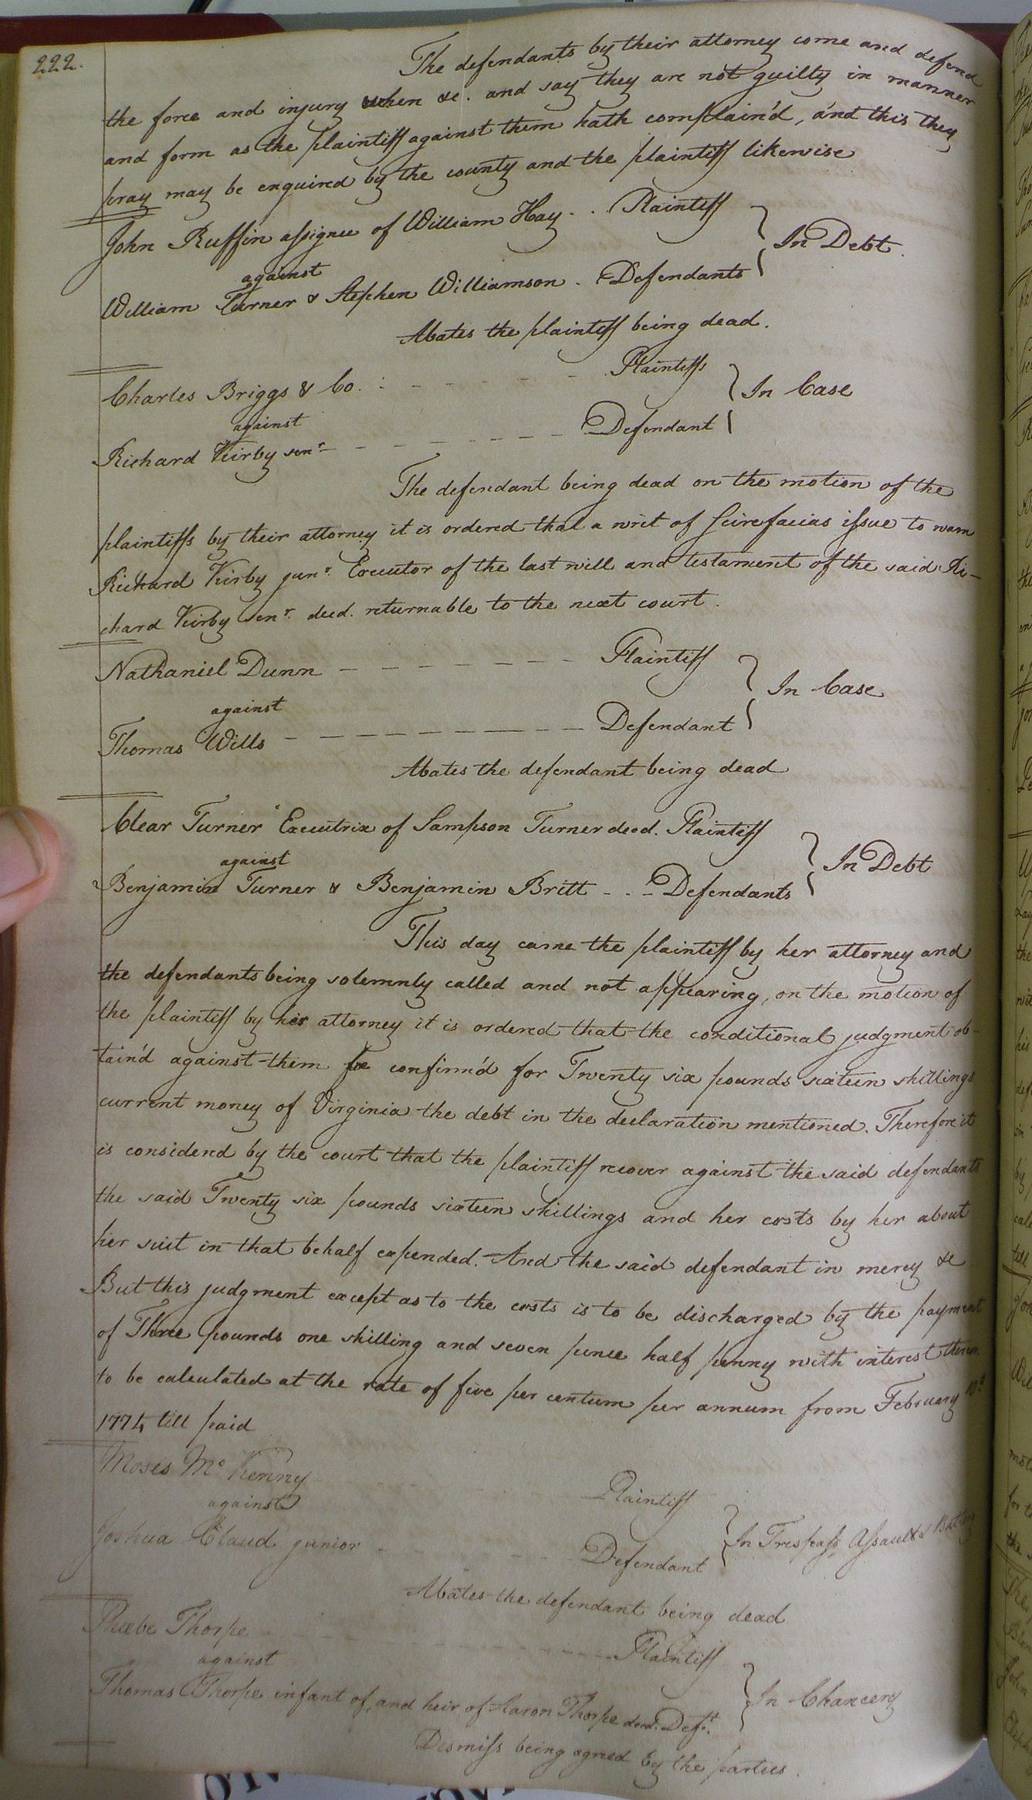 222.
The defendants by their attorney come and defend
the force and injury when &c. and say they are not guilty in manner
and form as the plaintiff against them hath complain'd, and this they
pray may be enquired by the county and the plaintiff likewise
John Ruffin assignee of William Hay . . Plaintiff
against
In Debt.
William Turner & Stephen Williamson . Defendants
Abates the plaintiff being dead.
Charles Briggs & Co. : - - - - - - Plaintiffs
against
In Case
Richard Kirby senr - - - - - - - Defendant
The defendant being dead on the motion of the
plaintiffs by their attorney it is ordered that a writ of scire facias issue to warn
Richard Kirby junr. Executor of the last will and testament of the said Ri-
chard Kirby senr. decd. returnable to the next court.
Nathaniel Dunn - - - - - - - Plaintiff
against
In Case
Thomas Wills - - - - - - - - - Defendant
Abates the defendant being dead
Clear Turner Executrix of Sampson Turner decd. Plaintiff
against
In Debt
Benjamin Turner & Benjamin Britt - . - Defendants
This day came the plaintiff by her attorney and
the defendants being solemnly called and not appearing, on the motion of
the plaintiff by her attorney it is ordered that the conditional judgment ob-
tain'd against them be confirm'd for Twenty six pounds sixteen shillings
current money of Virginia the debt in the declaration mentioned. Therefore it
is considerd by the court that the plaintiff recover against the said defendants
the said Twenty six pounds sixteen shillings and her costs by her about
her suit in that behalf expended. And the said defendant in mercy &c
But this judgment except as to the costs is to be discharged by the payment
of Three pounds one shilling and seven pence half penny with interest thereon
to be calculated at the rate of five per centum per annum from February
1774 till paid
Moses Mc Kenny - - - - Plaintiff
against
In Trespass, Assault & Battery
Joshua Claud junior - - - - Defendant
Abates the defendant being dead
Phœbe Thorpe - - - - - Plaintiff
against
In Chancery
Thomas Thorpe infant of, and heir of Aaron Thorpe decd. Deft.
Dismiss being agreed by the parties.